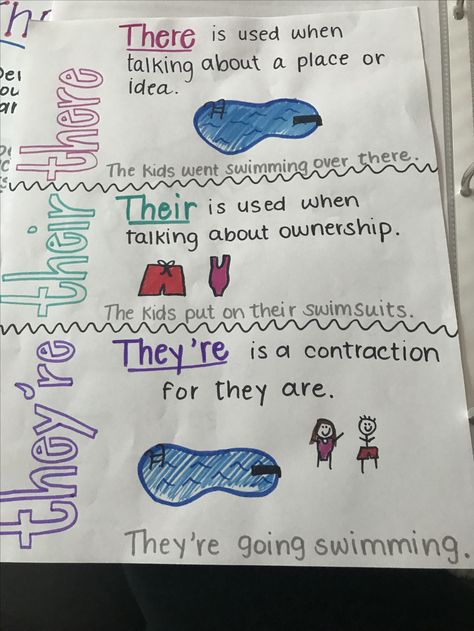 there
There is used when
talking about a place or
idea.
The kids went swimming over there.
their
Their is used when
talking about ownership.
The kids put on their swimsuits.
they're
They're is a contraction
for they are.
They're going swimming.